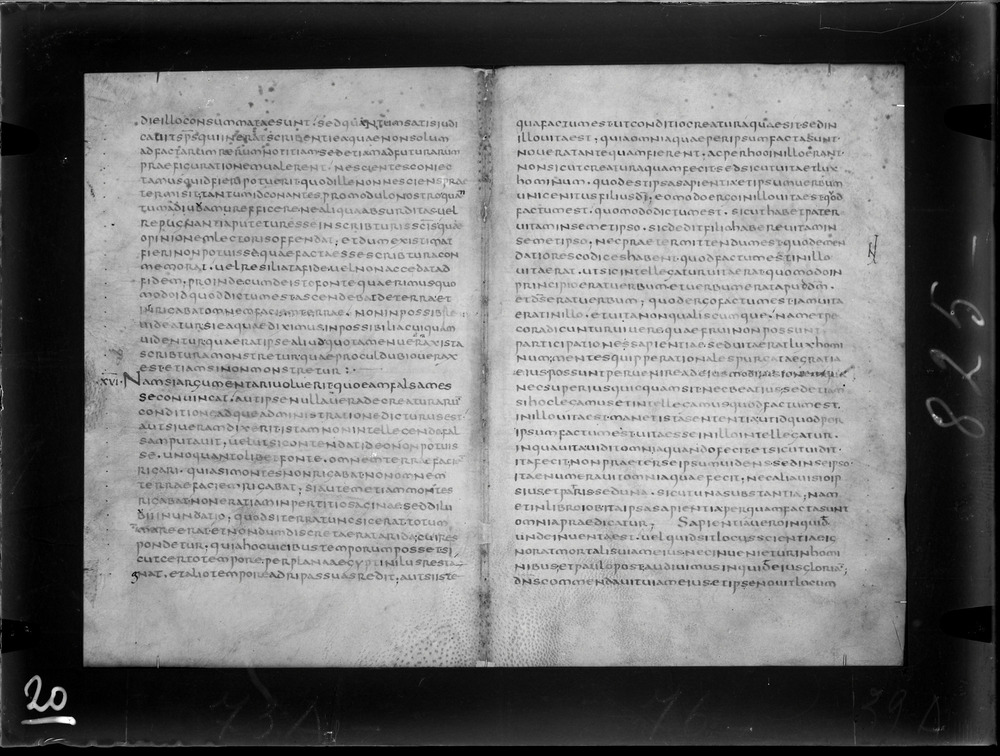 dieilloconsummataesunt. sedquantumsatisiudi
cauitspsquiineratscribentieaquaenonsolum
adfactarumrerumnotitiamsedetiamadfuturarum
praefigurationemualerent. nescientesconiec
tamusquidfieripotuerit quodillenonnesciensprae
termisit. tantumidconantespromodulonostroquan
tumadiuuamurefficerenealiquaabsurditasuel
repugnantiaputeturesseinscripturisscisquae
opinionemlectorisoffendat, etdumexistimat
fierinonpotuissequaefactaessescripturacon
memorat. uelresiliatafideuelnonaccedatad
fidem. proindecumdeistofontequaerimusquo
modoidquoddictumestascendebatdeterraet
rigabatomnemfaciemterrae. nonimpossibile
uideatursieaquaediximusinpossibiliacuiquam
uidenturquaeratipsealiudquotamenueraxista
scribturamonstreturquaeproculdubiouerax
estetiamsinonmonstretur:
xvi. Namsiargumentariuolueritquoeamfalsames
seconuincat. autipsenullaueradecreaturaru
conditioneadqueadministrationedicturusest
autsiueramdixeritistamnonintellegendofal
samputauit, uelutsicontendatideononpotuis
se. unoquantolibetfonte. omnemterraefacie
rigari. quiasimontesnonrigabatnonomnem
terraefaciemrigabat, siautemetiammontes
rigabatnoneratiaminpertitiosaginaseddilu
uiiinundatio, quodsiterratuncsicerattotum
mareeratetnondumdiscretaerat arida; cuires
pondetur. quiahocuicibustemporumpossetsi
cutcertotempore. perplanaaegyptinilusresta
gnat. etaliotemporeadripassuasredit. autsiiste
quafactumestutconditiocreaturaquaesitsedin
illouitaest, quiaomniaquaeperipsumfactasunt
noueratantequamfierent. acperhocinilloerant
nonsicutcreaturaquamfecitsedsicutuitaetlux
hominum. quodestipsasapientiaetipsumuerbum
unigenitusfiliusdi. eomodoergoinillouitaestquod
factumest. quomododictumest. sicuthabetpater
uitaminsemetipso. sicdeditfiliohabereuitamin
semetipso, necpraetermittendumestquodemen
datiorescodiceshabent. quodfactumestinillo
uitaerat. utsicintellegaturuitaeratquomodoin
principioeratuerbumetuerbumerataputdm.
etdseratuerbum, quodergofactumestiamuita
eratinillo. etuitanonqualiscumque. nametpe
coradicunturuiuerequaefruinonpossunt
participationesapientiaeseduitaeratluxhomi
num; mentesquipperationalespurgataegratia
necsuperiusquicquamsitnecbeatius; sedetiam
sihoclegamusetintellegamusquodfactumest.
inillouitaestmanetistasententiautidquodper
ipsumfactumestuitaesseinillointellegatur.
inquauitauiditomniaquandofecitetsicutuidit.
itafecitnonpraeterseipsumuidenssedinseipso
itaenumerauitomniaquaefecit, necaliauisioip
siusetpatrissedunа. sicutunasubstantia, nam
etinlibroiobitaipsasapientiaperquamfactasunt
omniapraedicatur, Sapientiaueroinquid
undeinuentaest. uelquidsitlocusscientiaeig
noratmortalisuiameiusnecinuenieturinhomi
nibus; etpaulopostaudiuimusinquideiusgloria;
dnscommendauituiameiusetipsenouitlocum
825
20
73A
71
39A